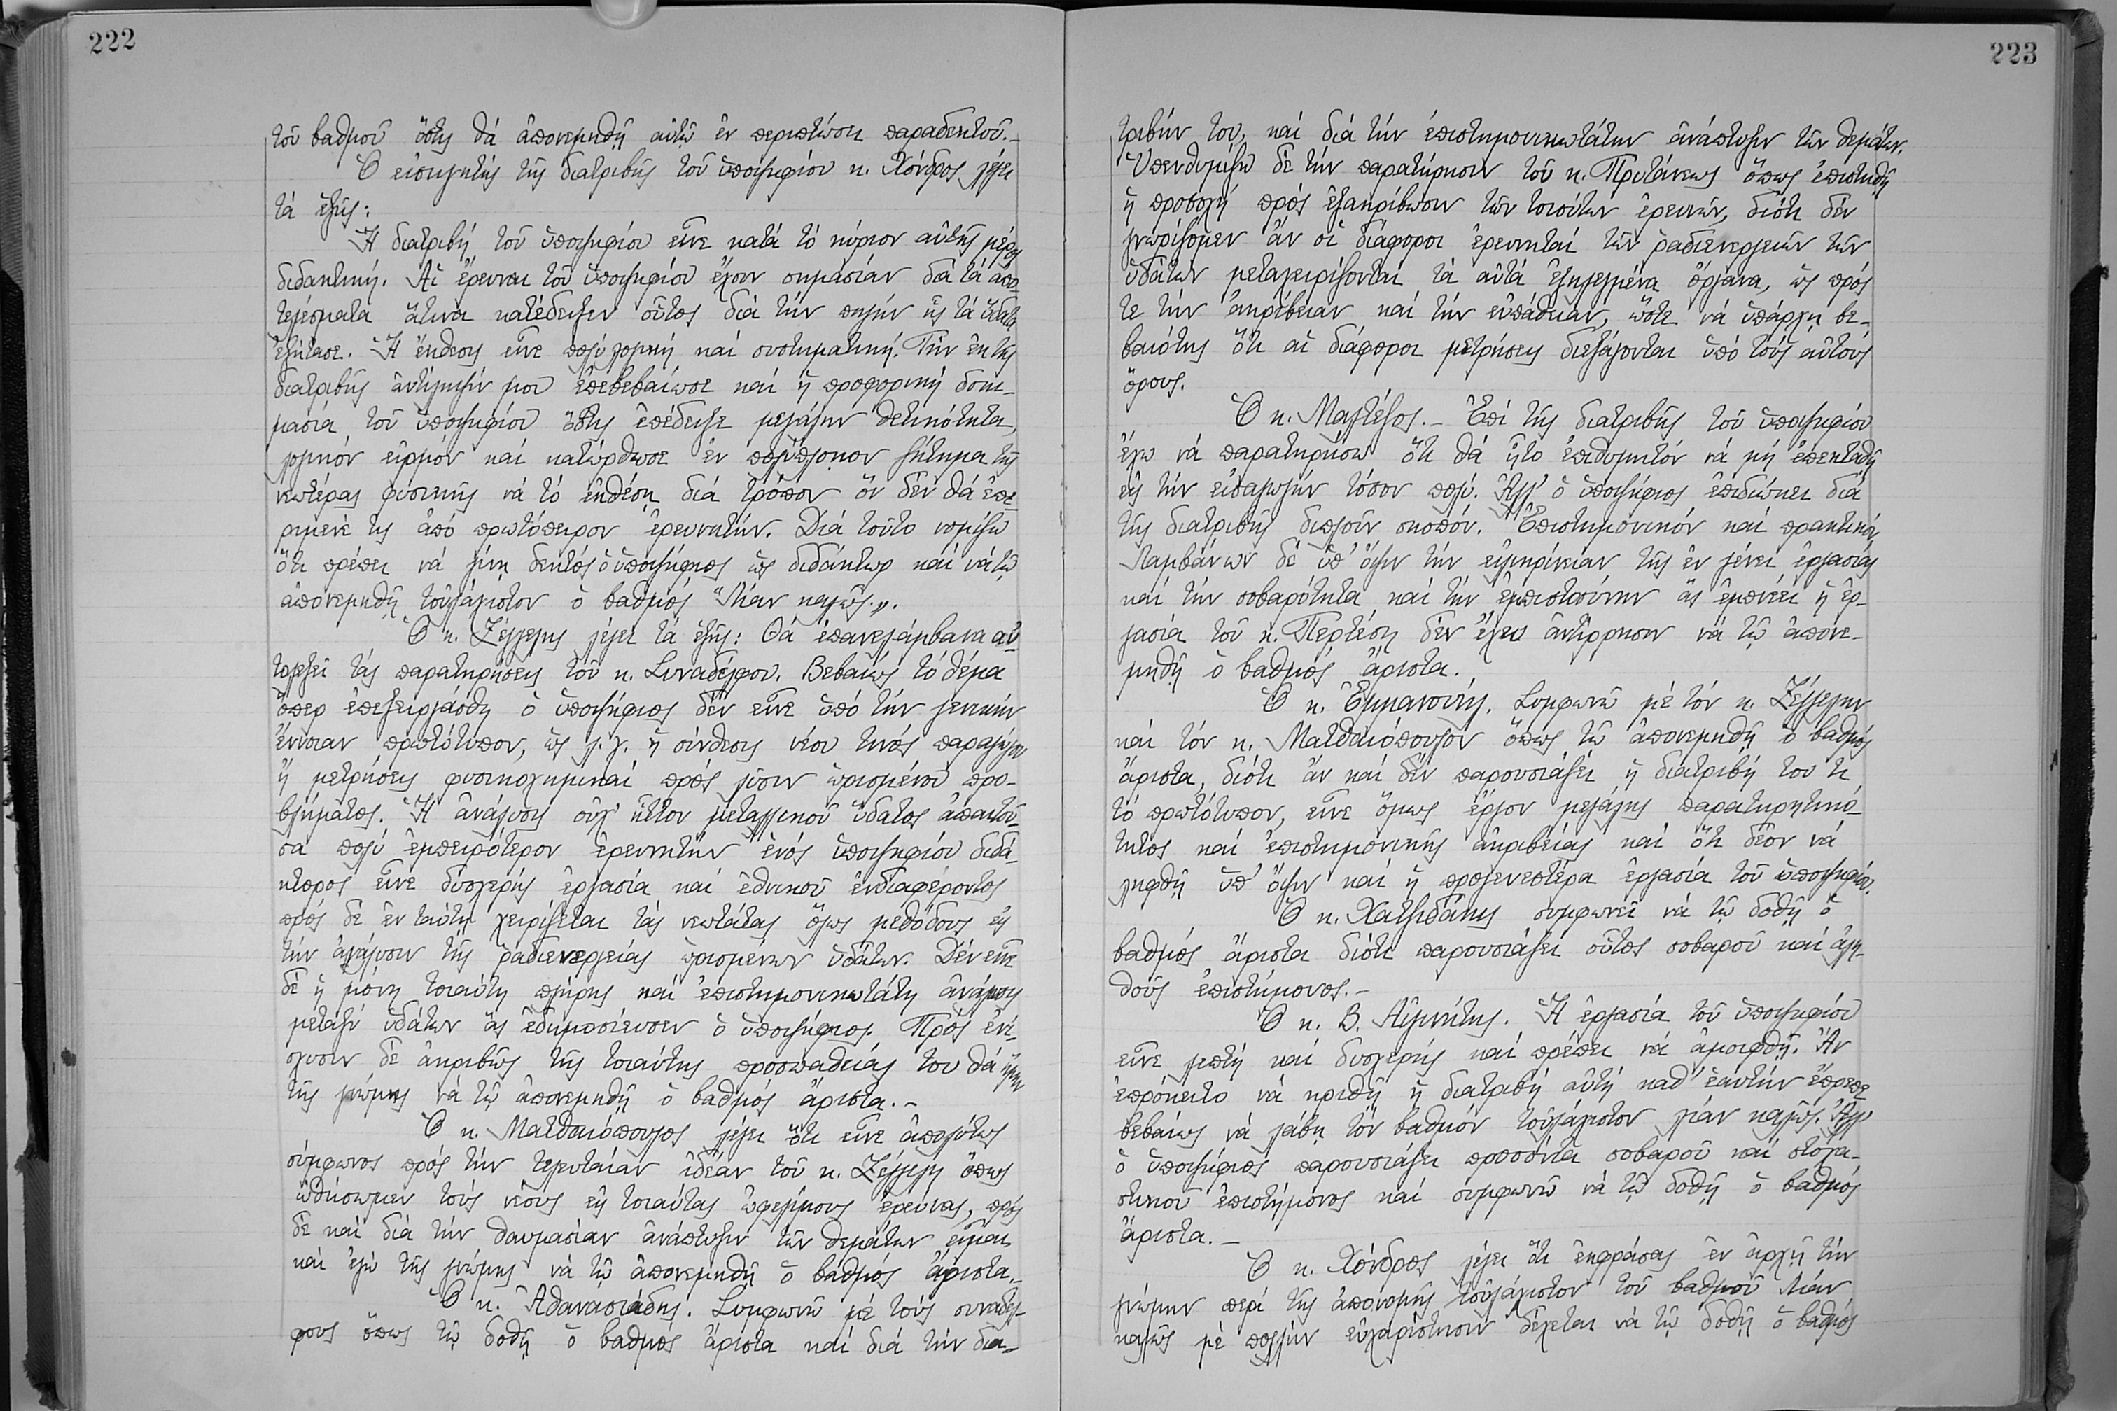 222
τοῦ βαθμοῦ ὅστις θά ἀπονεμηθῇ αὐτῷ ἐν περιπτώσει παραδεκτοῦ.-
Ὁ εἰσηγητής τῆς διατριβῆς τοῦ ὑποψηφίου κ. Χόνδρος λέγει
τά ἑξῆς:
Ἡ διατριβή τοῦ ὑποψηφίου εἶνε κατά τό κύριον αὐτῆς μέρος
διδακτική. Αἱ ἔρευναι τοῦ ὑποψηφίου ἔχουν σημασίαν διά τά ἀπο-
τελέσματα ἅτινα κατέδειξεν οὗτος διά τήν πηγήν ἧς τά ὕδατα
ἐξήτασε. Ἡ ἔκθεσις εἶνε πολύ λογική καί συστηματική. Τήν ἐκ τῆς
διατριβῆς ἀντίληψίν μου ἐπεβεβαίωσε καί ἡ προφορική δοκι-
μασία τοῦ ὑποψηφίου ὅστις ἐπέδειξε μεγάλην θετικότητα,
λογικόν εἱρμόν καί κατώρθωσε ἐν πολύπλοκον ζήτημα τῆς
νεωτέρας φυσικῆς νά τό ἐκθέσῃ διά τρόπον ὅν δέν θά ἐπε-
ρίμενέ τις ἀπό πρωτόπειρον ἐρευνητήν. Διά τοῦτο νομίζω
ὅτι πρέπει νά γίνῃ δεκτός ὁ ὑποψήφιος ὡς διδάκτωρ καί νά τῷ
ἀπονεμηθῇ τοὐλάχιστον ὁ βαθμός "Λίαν καλῶς".
Ὁ κ. Ζέγγελης λέγει τά ἑξῆς: Θά ἐπανελάμβανα αὐ-
τολεξεί τάς παρατηρήσεις τοῦ κ. Συναδέλφου. Βεβαίως τό θέμα
ὅπερ ἐπεξειργάσθη ὁ ὑποψήφιος δέν εἶνε ὑπό τήν γενικήν
ἔννοιαν πρωτότυπον, ὡς λ.χ. ἡ σύνθεσις νέου τινός παραγώγου
ἤ μετρήσεις φυσικοχημικαί πρός λύσιν ὡρισμένου προ-
βλήματος. Ἡ ἀνάλυσις οὐχ' ἧττον μεταλλικοῦ ὕδατος ἀπαιτοῦ-
σα πολύ ἐμπειρότερον ἐρευνητήν ἑνός ὑποψηφίου διδά-
κτορος εἶνε δυσχερής ἐργασία καί ἐθνικοῦ ἐνδιαφέροντος
πρός δέ ἐν ταύτῃ χειρίζεται τάς νεωτάτας ὅλως μεθόδους εἰς
τήν ἀνάλυσιν τῆς ραδιενεργείας ὡρισμένων ὑδάτων. Δέν εἶνε
δέ ἡ μόνη τοιαύτη πλήρης καί ἐπιστημονικωτάτη ἀνάλυσις
μεταξύ ὑδάτων ἅς ἐδημοσίευσεν ὁ ὑποψήφιος. Πρός ἐνί-
σχυσιν δέ ἀκριβῶς τῆς τοιαύτης προσπαθείας του θά ἤμην
τῆς γνώμης νά τῷ ἀπονεμηθῇ ὁ βαθμός ἄριστα.-
Ὁ κ. Ματθαιόπουλος λέγει ὅτι εἶνε ἀπολύτως
σύμφωνος πρός τήν τελευταίαν ἰδέαν τοῦ κ. Ζέγγελη ὅπως
ὠθήσωμεν τούς νέους εἰς τοιαύτας ὠφελίμους ἐρεύνας, πρός
δέ καί διά τήν θαυμασίαν ἀνάπτυξιν τῶν θεμάτων εἶμαι
καί ἐγώ τῆς γνώμης νά τῷ ἀπονεμηθῇ ὁ βαθμός ἄριστα.-
Ὁ κ. Ἀθανασιάδης. Συμφωνῶ μέ τούς συναδέλ-
φους ὅπως τῷ δοθῇ ὁ βαθμός ἄριστα καί διά τήν δια-
223
τριβήν του, καί διά τήν ἐπιστημονικωτάτην ἀνάπτυξιν τῶν θεμάτων.
Ὑπενθυμίζω δέ τήν παρατήρησιν τοῦ κ. Πρυτάνεως ὅπως ἐπιστηθῇ
ἡ προσοχή πρός ἐξακρίβωσιν τῶν τοιούτων ἐρευνῶν, διότι δέν
γνωρίζομεν ἄν οἱ διάφοροι ἐρευνηταί τῶν ραδιενεργειῶν τῶν
ὑδάτων μεταχειρίζονται τά αὐτά ἐξηλεγμένα ὄργανα, ὡς πρός
τε τήν ἀκρίβειαν καί τήν εὐπάθειαν, ὥστε νά ὑπάρχῃ βε-
βαιότης ὅτι αἱ διάφοροι μετρήσεις διεξάγονται ὑπό τούς αὐτούς
ὅρους.
Ὁ κ. Μαλτέζος.- Ἐπί τῆς διατριβῆς τοῦ ὑποψηφίου
ἔχω νά παρατηρήσω ὅτι θά ἦτο ἐπιθυμητόν νά μή ἐπεκταθῇ
εἰς τήν εἰσαγωγήν τόσον πολύ. Ἀλλ' ὁ ὑποψήφιος ἐπιδιώκει διά
τῆς διατριβῆς διπλοῦν σκοπόν. Ἐπιστημονικόν καί πρακτικόν,
Λαμβάνων δέ ὑπ' ὄψιν τήν εἰλικρίνειαν τῆς ἐν γένει ἐργασίας
καί τήν σοβαρότητα καί τήν ἐμπιστοσύνην ἅς ἐμπνέει ἡ ἐρ-
γασία τοῦ κ. Περτέση δέν ἔχω ἀντίρρησιν νά τῷ ἀπονε-
μηθῇ ὁ βαθμός ἄριστα.
Ὁ κ. Ἐμμανουήλ. Συμφωνῶ μέ τόν κ. Ζέγγελην
καί τόν κ. Ματθαιόπουλον ὅπως τῷ ἀπονεμηθῇ ὁ βαθμός
ἄριστα, διότι ἄν καί δέν παρουσιάζει ἡ διατριβή του τι
τό πρωτότυπον, εἶνε ὅμως ἔργον μεγάλης παρατηρητικό-
τητος καί ἐπιστημονικῆς ἀκριβείας καί ὅτι δέον νά
ληφθῇ ὑπ' ὄψιν καί ἡ προγενεστέρα ἐργασία τοῦ ὑποψηφίου.
Ὁ κ. Χατζιδάκης συμφωνεῖ νά τῷ δοθῇ ὁ
βαθμός ἄριστα διότι παρουσιάζει οὗτος σοβαροῦ καί ἀλη-
θοῦς ἐπιστήμονος.-
Ὁ κ. Β. Αἰγινήτης. Ἡ ἐργασία τοῦ ὑποψηφίου
εἶνε λεπτή καί δυσχερής καί πρέπει νά ἀμειφθῇ. Ἄν
ἐπρόκειτο νά κριθῇ ἡ διατριβή αὐτή καθ' ἑαυτήν ἔπρεπε
βεβαίως νά λάβῃ τόν βαθμόν τοὐλάχιστον λίαν καλῶς. Ἀλλ'
ὁ ὑποψήφιος παρουσιάζει προσόντα σοβαροῦ καί στοχα-
στικοῦ ἐπιστήμονος καί συμφωνῶ νά τῷ δοθῇ ὁ βαθμός
ἄριστα.-
Ὁ κ. Χόνδρος λέγει ὅτι ἐκφράσας ἐν ἀρχῇ τήν
γνώμην περί τῆς ἀπονομῆς τοὐλάχιστον τοῦ βαθμοῦ Λίαν
καλῶς μέ πολλήν εὐχαρίστησιν δέχεται νά τῷ δοθῇ ὁ βαθμός